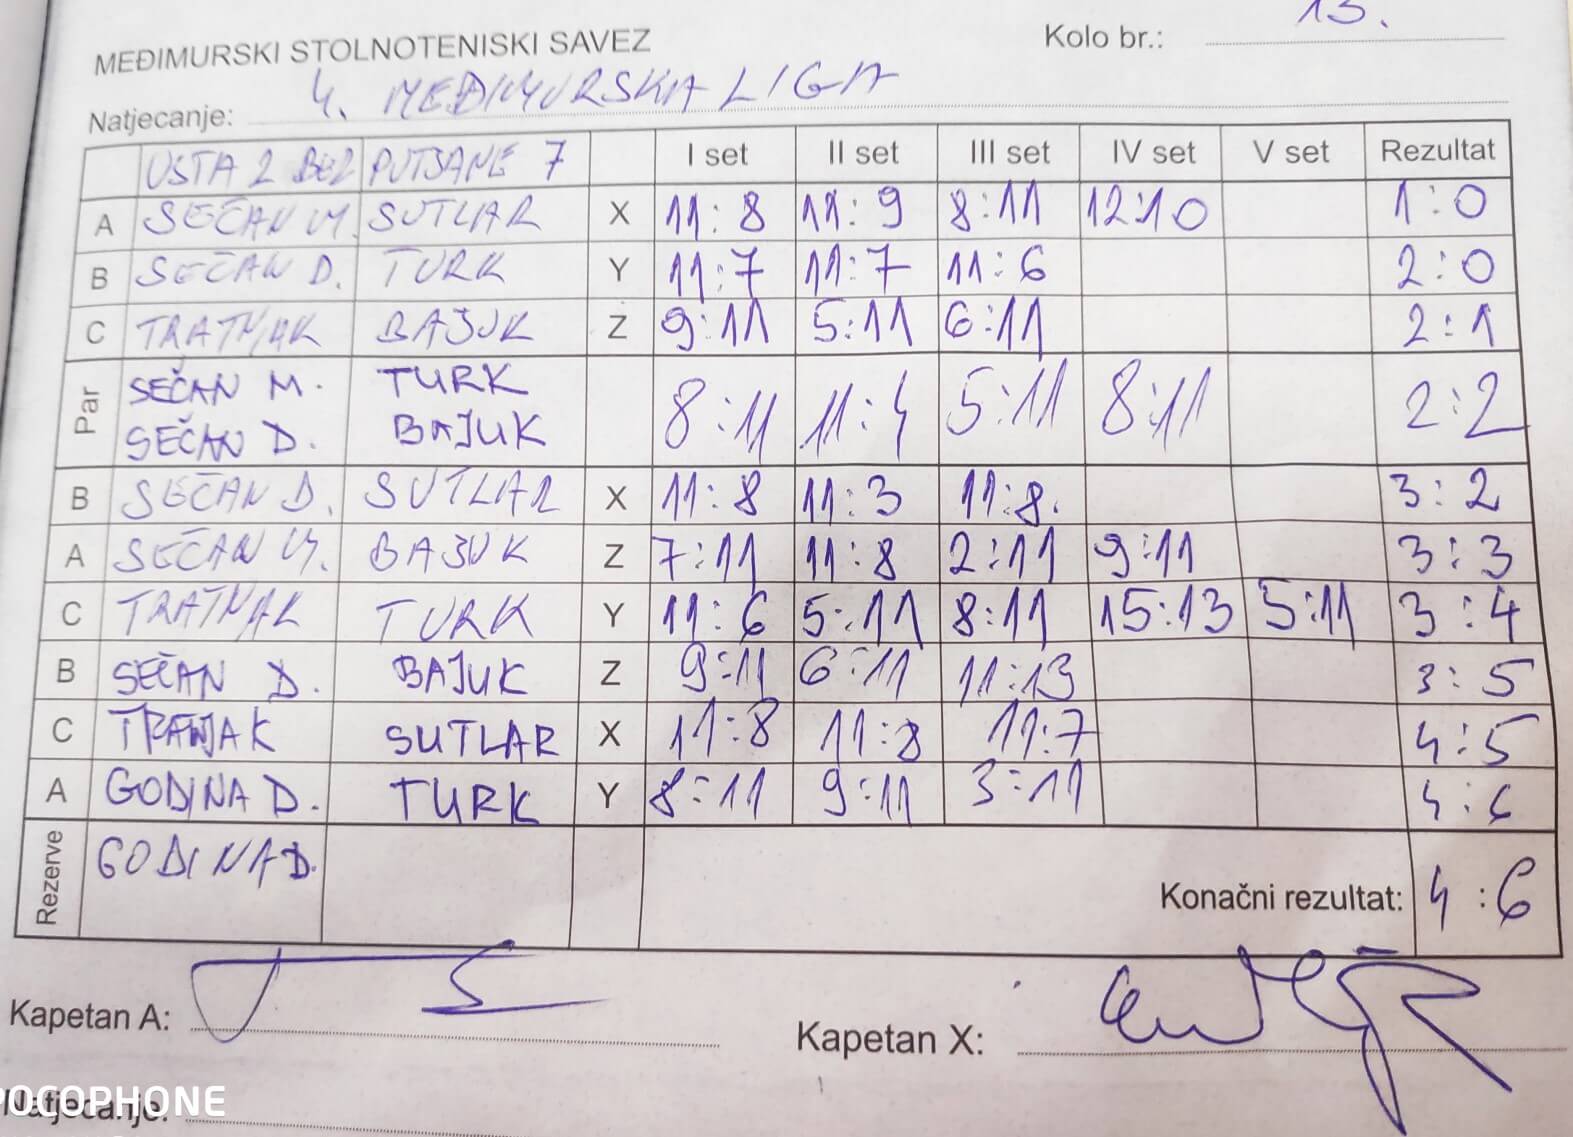 MEĐIMURSKI STOLNOTENISKI SAVEZ
Kolo br.: 13.
Natjecanje: 4. MEĐIMURSKA LIGA
USTA 2 BEZ PUTJANE 7 I set II set III set IV set V set Rezultat
A SEČAN M. SUTLAR X 11:8 11:9 8:11 12:10 1:0
B SEČAN D. TURK Y 11:7 11:7 11:6 2:0
C TRATNJAK BAJUK Z 9:11 5:11 6:11 2:1
Par SEČAN M. TURK 8:11 11:4 5:11 8:11 2:2
SEČAN D. BAJUK
B SEČAN D. SUTLAR X 11:8 11:3 11:8. 3:2
A SEČAN M. BAJUK Z 7:11 11:8 2:11 9:11 3:3
C TRATNJAK TURK Y 11:6 5:11 8:11 15:13 5:11 3:4
B SEČAN D. BAJUK Z 9:11 6:11 11:13 3:5
C TRATNJAK SUTLAR X 11:8 11:8 11:7 4:5
A GODINA D. TURK Y 8:11 9:11 3:11 4:6
Rezerve GODINA D. Konačni rezultat: 4:6
Kapetan A:
Kapetan X:
Natjecanje:
POCOPHONE